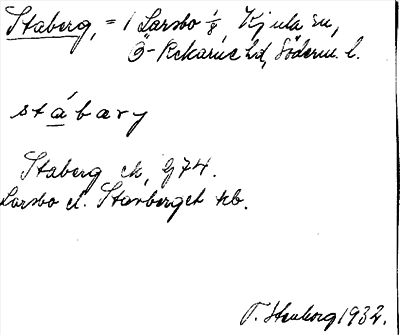 Staberg, = 1 Larsbo 1/8, Kjula sn,
Ö-Rekarne hd, Söderm. l.
stábary
Staberg ek, G74.
Larsbo el. Starberget kb.
1932.